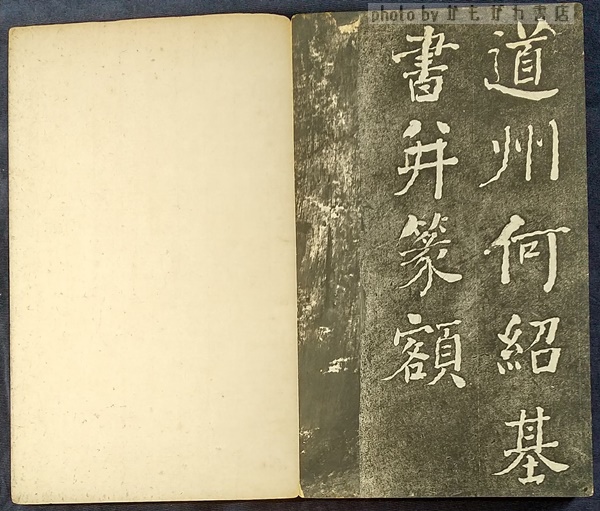 photo by かもがわ書店
道州何紹基
書并篆額